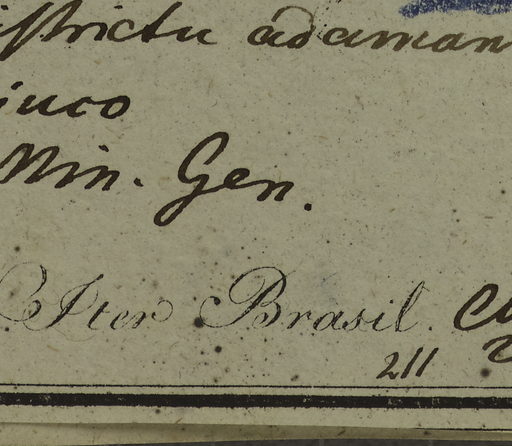 istrictu adaman
iuco
Min. Gen.
Iter Brasil.
211